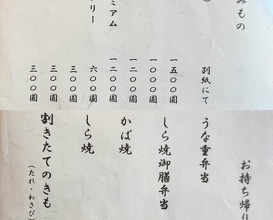 みもの
別紙にて
一五〇〇圓
一〇〇〇圓
一二〇〇圓
ミアム
一二〇〇圓
リー
六〇〇圓
三〇〇圓
三〇〇圓
三〇〇圓
お持ち帰り
うな重弁当
しら焼御膳弁当
かば焼
しら焼
割きたてのきも
(たれ・わさび)